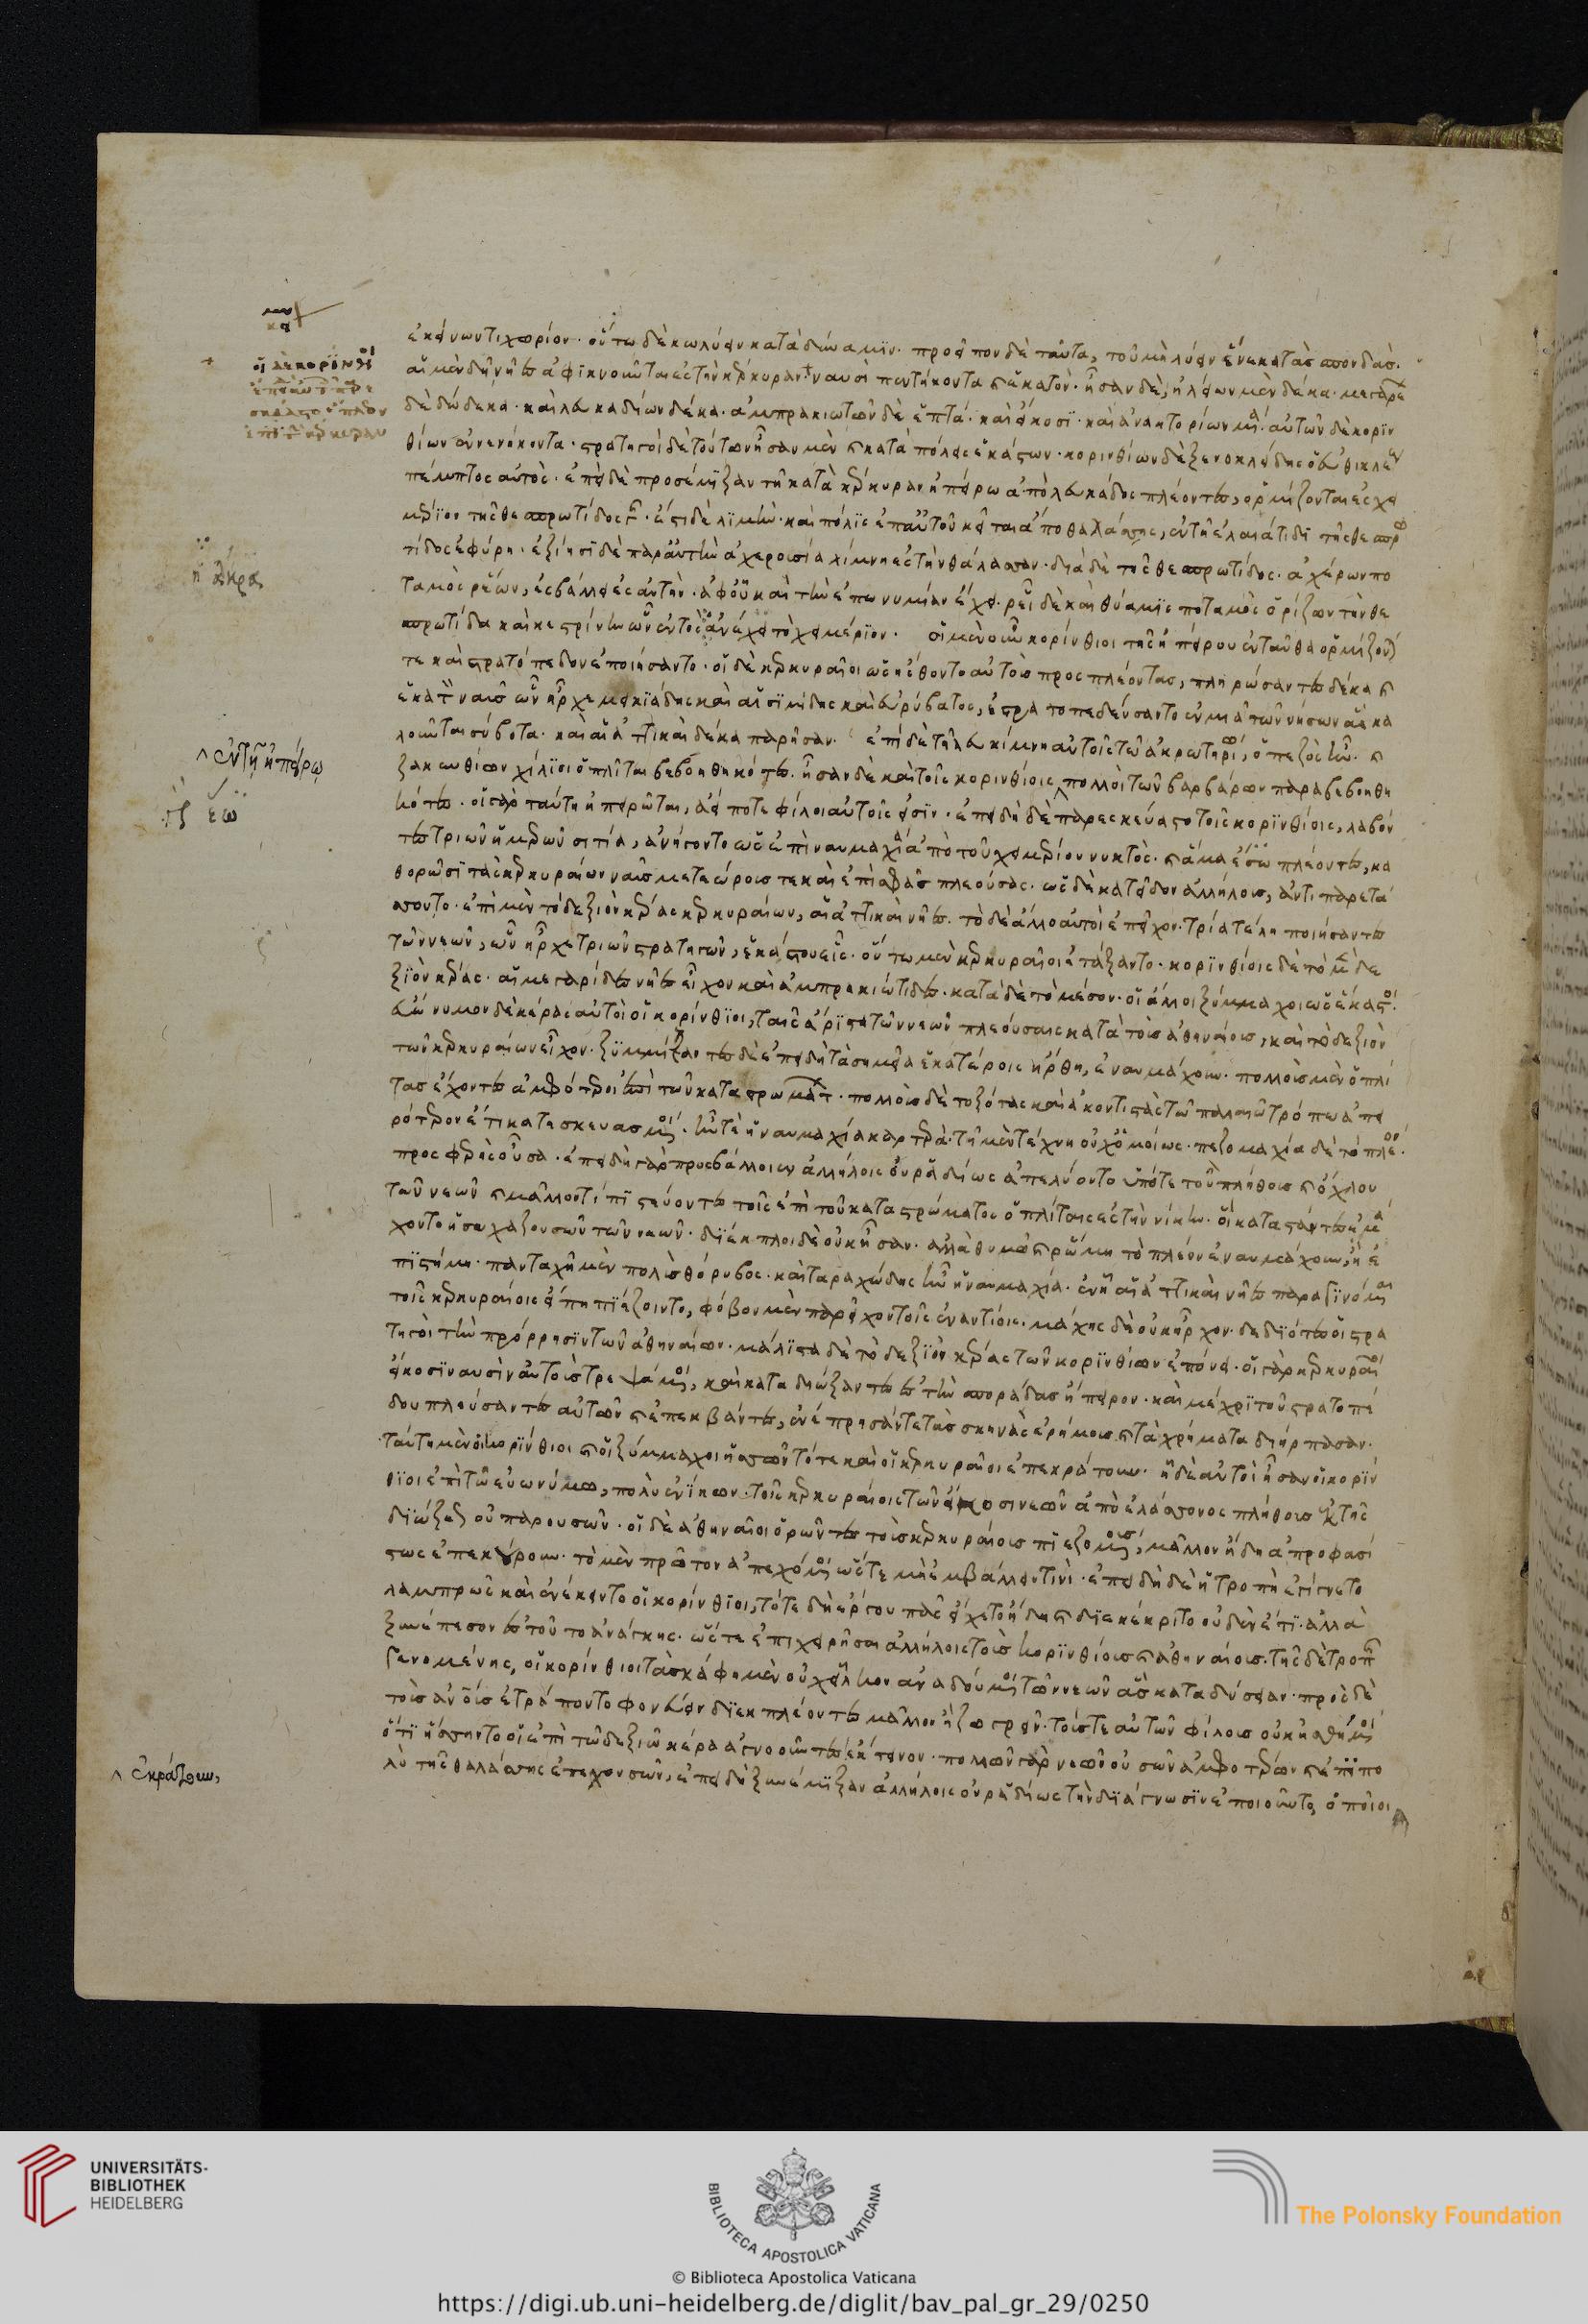 ἐκείνων τι χωρίον· οὕτω δὲ κωλύειν κατὰ δύναμιν· προεῖπον δὲ ταῦτα, τοῦ μὴ λύειν ἕνεκα τὰς σπονδάς·
αἱ μὲν δὴ νῆες ἀφικνοῦνται ἐς τὴν κέρκυραν· ναυσὶ πεντήκοντα καὶ ἑκατὸν· ἦσαν δὲ, ἠλείων μὲν δέκα· μεγαρέ
δὲ δώδεκα· καὶ λευκαδίων δέκα· ἀμπρακιωτῶν δὲ ἑπτὰ· καὶ εἴκοσι· καὶ ἀνακτορίων μία· αὐτῶν δὲ κοριν
θίων ἐνενήκοντα· στρατηγοὶ δὲ τούτων ἦσαν μὲν καὶ κατὰ πόλεις ἑκάστων· κορινθίων δὲ ξενοκλείδης ὁ εὐθικλέους
πέμπτος αὐτὸς· ἐπειδὴ δὲ προσέμιξαν τῇ κατὰ κέρκυραν ἠπείρῳ ἀπὸ λευκάδος πλέοντες, ὁρμίζονται ἐς χει
μέριον τῆς θεσπρωτίδος γῆς· ἔστι δὲ λιμὴν· καὶ πόλις ἐπ' αὐτοῦ κεῖται ἀπὸ θαλάσσης, ἐν τῇ ἐλαιάτιδι τῆς θεσπρω
τίδος ἐφύρη· ἐξίησι δὲ παρ' αὐτὴν ἀχερουσία λίμνη ἐς τὴν θάλασσαν· διὰ δὲ τῆς θεσπρωτίδος ἀχέρων πο
ταμὸς ῥέων, ἐσβάλλει ἐς αὐτὴν· ἀφ' οὗ καὶ τὴν ἐπωνυμίαν ἔχει· ῥεῖ δὲ καὶ θύαμις ποταμὸς ὁρίζων τὴν θε
σπρωτίδα καὶ κεστρίνην ὧν ἐντὸς ἀνέχει τὸ χειμέριον· οἱ μὲν οὖν κορίνθιοι τῆς ἠπείρου ἐνταῦθα ὁρμίζονταί
τε καὶ στρατόπεδον ἐποιήσαντο· οἱ δὲ κερκυραῖοι ὡς ᾔσθοντο αὐτοὺς προσπλέοντας, πληρώσαντες δέκα καὶ
ἑκατὸν ναῦς ὧν ἦρχε μεικιάδης καὶ αἰσιμίδης καὶ εὐρύβατος, ἐστρατοπεδεύσαντο ἐν μιᾷ τῶν νήσων αἳ κα
λοῦνται σύβοτα· καὶ αἱ ἀττικαὶ δέκα παρῆσαν· ἐπὶ δὲ τῇ λευκίμνῃ αὐτοῖς τῷ ἀκρωτηρίῳ, ὁ πεζὸς ἦν· καὶ
ζακυνθίων χίλιοι ὁπλῖται βεβοηθηκότες· ἦσαν δὲ καὶ τοῖς κορινθίοις πολλοὶ τῶν βαρβάρων παραβεβοηθη
κότες· οἱ γὰρ ταύτῃ ἠπειρῶται, ἀεί ποτε φίλοι αὐτοῖς εἰσίν· ἐπειδὴ δὲ παρεσκεύαστο τοῖς κορινθίοις, λαβόν
τες τριῶν ἡμερῶν σιτία, ἀνήγοντο ὡς ἐπὶ ναυμαχία ἀπὸ τοῦ χειμερίου νυκτὸς· καὶ ἅμα ἕῳ πλέοντες, κα
θορῶσι τὰς κερκυραίων ναῦς μετεώρους τε καὶ ἐπὶ σφᾶς πλεούσας· ὡς δὲ κατεῖδον ἀλλήλους, ἀντιπαρετά
σσοντο· ἐπὶ μὲν τὸ δεξιὸν κέρας κερκυραίων, αἱ ἀττικαὶ νῆες· τὸ δὲ ἄλλο αὐτοὶ ἐπεῖχον· τρία τέλη ποιήσαντες
τῶν νεῶν, ὧν ἦρχε τριῶν στρατηγῶν, ἑκάστου εἷς· οὕτω μὲν κερκυραῖοι ἐτάξαντο· κορινθίοις δὲ τὸ μὲν δε
ξιὸν κέρας· αἱ μεγαρίδες νῆες εἶχον καὶ ἀμπρακιώτιδες· κατὰ δὲ τὸ μέσον· οἱ ἄλλοι ξύμμαχοι ὡς ἕκαστοι·
εὐώνυμον δὲ κέρας αὐτοὶ οἱ κορίνθιοι, ταῖς ἄριστα τῶν νεῶν πλεούσαις κατὰ τοὺς ἀθηναίους, καὶ τὸ δεξιὸν
τῶν κερκυραίων εἶχον· ξυμμίξαντες δὲ ἐπειδὴ τὰ σημεῖα ἑκατέροις ἤρθη, ἐναυμάχουν· πολλοὺς μὲν ὁπλί
τας ἔχοντες ἀμφότεροι ἐπὶ τῶν καταστρωμάτων· πολλοὺς δὲ τοξότας καὶ ἀκοντιστὰς τῷ παλαιῷ τρόπῳ ἀπει
ρότερον ἔτι κατεσκευασμένοι· ἦν τε ἡ ναυμαχία καρτερὰ· τῇ μὲν τέχνῃ οὐχ ὁμοίως· πεζομαχία δὲ τὸ πλέον·
προσφερὴς οὖσα· ἐπειδὴ γὰρ προσβάλλοιεν ἀλλήλοις οὐ ῥᾳδίως ἀπελύοντο ὑπό τε τοῦ πλήθους καὶ ὄχλου
τῶν νεῶν καὶ μᾶλλόν τι πιστεύοντες τοῖς ἐπὶ τοῦ καταστρώματος ὁπλίταις ἐς τὴν νίκην· οἳ καταστάντες ἐμά
χοντο ἡσυχαζουσῶν τῶν νεῶν· διέκπλοι δὲ οὐκ ἦσαν· ἀλλὰ θυμῷ καὶ ῥώμῃ τὸ πλέον ἐναυμάχουν, ἢ ἐ
πιστήμῃ· πανταχῇ μὲν πολὺς θόρυβος· καὶ ταραχώδης ἦν ἡ ναυμαχία· ἐν ᾗ αἱ ἀττικαὶ νῆες παραγινόμεναι
τοῖς κερκυραίοις εἴ πῃ πιέζοιντο, φόβον μὲν παρεῖχον τοῖς ἐναντίοις· μάχης δὲ οὐκ ἦρχον· δεδιότες οἱ στρα
τηγοὶ τὴν πρόρρησιν τῶν ἀθηναίων· μάλιστα δὲ τὸ δεξιὸν κέρας τῶν κορινθίων ἐπόνει· οἱ γὰρ κερκυραῖοι
εἴκοσι ναυσὶν αὐτοὺς τρεψάμενοι, καὶ καταδιώξαντες ἐς τὴν σποράδας ἤπειρον· καὶ μέχρι τοῦ στρατοπέ
δου πλεύσαντες αὐτῶν καὶ ἐπεκβάντες, ἐνέπρησάν τε τὰς σκηνὰς ἐρήμους καὶ τὰ χρήματα διήρπασαν·
ταύτῃ μὲν οἱ κορίνθιοι καὶ οἱ ξύμμαχοι ἡσσῶντό τε καὶ οἱ κερκυραῖοι ἐπεκράτουν· ᾗ δὲ αὐτοὶ ἦσαν οἱ κορίν
θιοι ἐπὶ τῷ εὐωνύμῳ, πολὺ ἐνίκων· τοῖς κερκυραίοις τῶν εἴκοσι νεῶν ἀπὸ ἐλάσσονος πλήθους ἐκ τῆς
διώξεως οὐ παρουσῶν· οἱ δὲ ἀθηναῖοι ὁρῶντες τοὺς κερκυραίους πιεζομένους, μᾶλλον ἤδη ἀπροφασί
στως ἐπεκούρουν· τὸ μὲν πρῶτον ἀπεχόμενοι ὥστε μὴ ἐμβάλλειν τινὶ· ἐπειδὴ δὲ ἡ τροπὴ ἐγίγνετο
λαμπρῶς καὶ ἐνέκειντο οἱ κορίνθιοι, τότε δὴ ἔργου πᾶς εἴχετο ἤδη καὶ διεκέκριτο οὐδὲν ἔτι· ἀλλὰ
ξυνέπεσον ἐς τοῦτο ἀνάγκης· ὥστε ἐπιχειρῆσαι ἀλλήλοις τοὺς κορινθίους καὶ ἀθηναίους· τῆς δὲ τροπῆς
γενομένης, οἱ κορίνθιοι τὰ σκάφη μὲν οὐχ εἷλκον ἀναδούμενοι τῶν νεῶν ἃς καταδύσειαν· πρὸς δὲ
τοὺς ἀνθρώπους ἐτράποντο φονεύειν διεκπλέοντες μᾶλλον ἢ ζωγρεῖν· τούς τε αὐτῶν φίλους οὐκ ᾐσθημένοι
ὅτι ἥσσηντο οἱ ἐπὶ τῷ δεξιῷ κέρα ἀγνοοῦντες ἔκτεινον· πολλῶν γὰρ νεῶν οὐσῶν ἀμφοτέρων καὶ ἐπὶ πο
λὺ τῆς θαλάσσης ἐπεχουσῶν, ἐπειδὴ ξυνέμιξαν ἀλλήλοις οὐ ῥᾳδίως τὴν διάγνωσιν ἐποιοῦντο, ὁποῖοι
οἱ δὲ κορίνθιοι
ἡ ἄκρα
ἐν τῇ ἠπείρῳ
ἕῳ
ἐκράτουν,
UNIVERSITÄTS-
BIBLIOTHEK
HEIDELBERG
BIBLIOTECA APOSTOLICA VATICANA
The Polonsky Foundation
© Biblioteca Apostolica Vaticana
https://digi.ub.uni-heidelberg.de/diglit/bav_pal_gr_29/0250